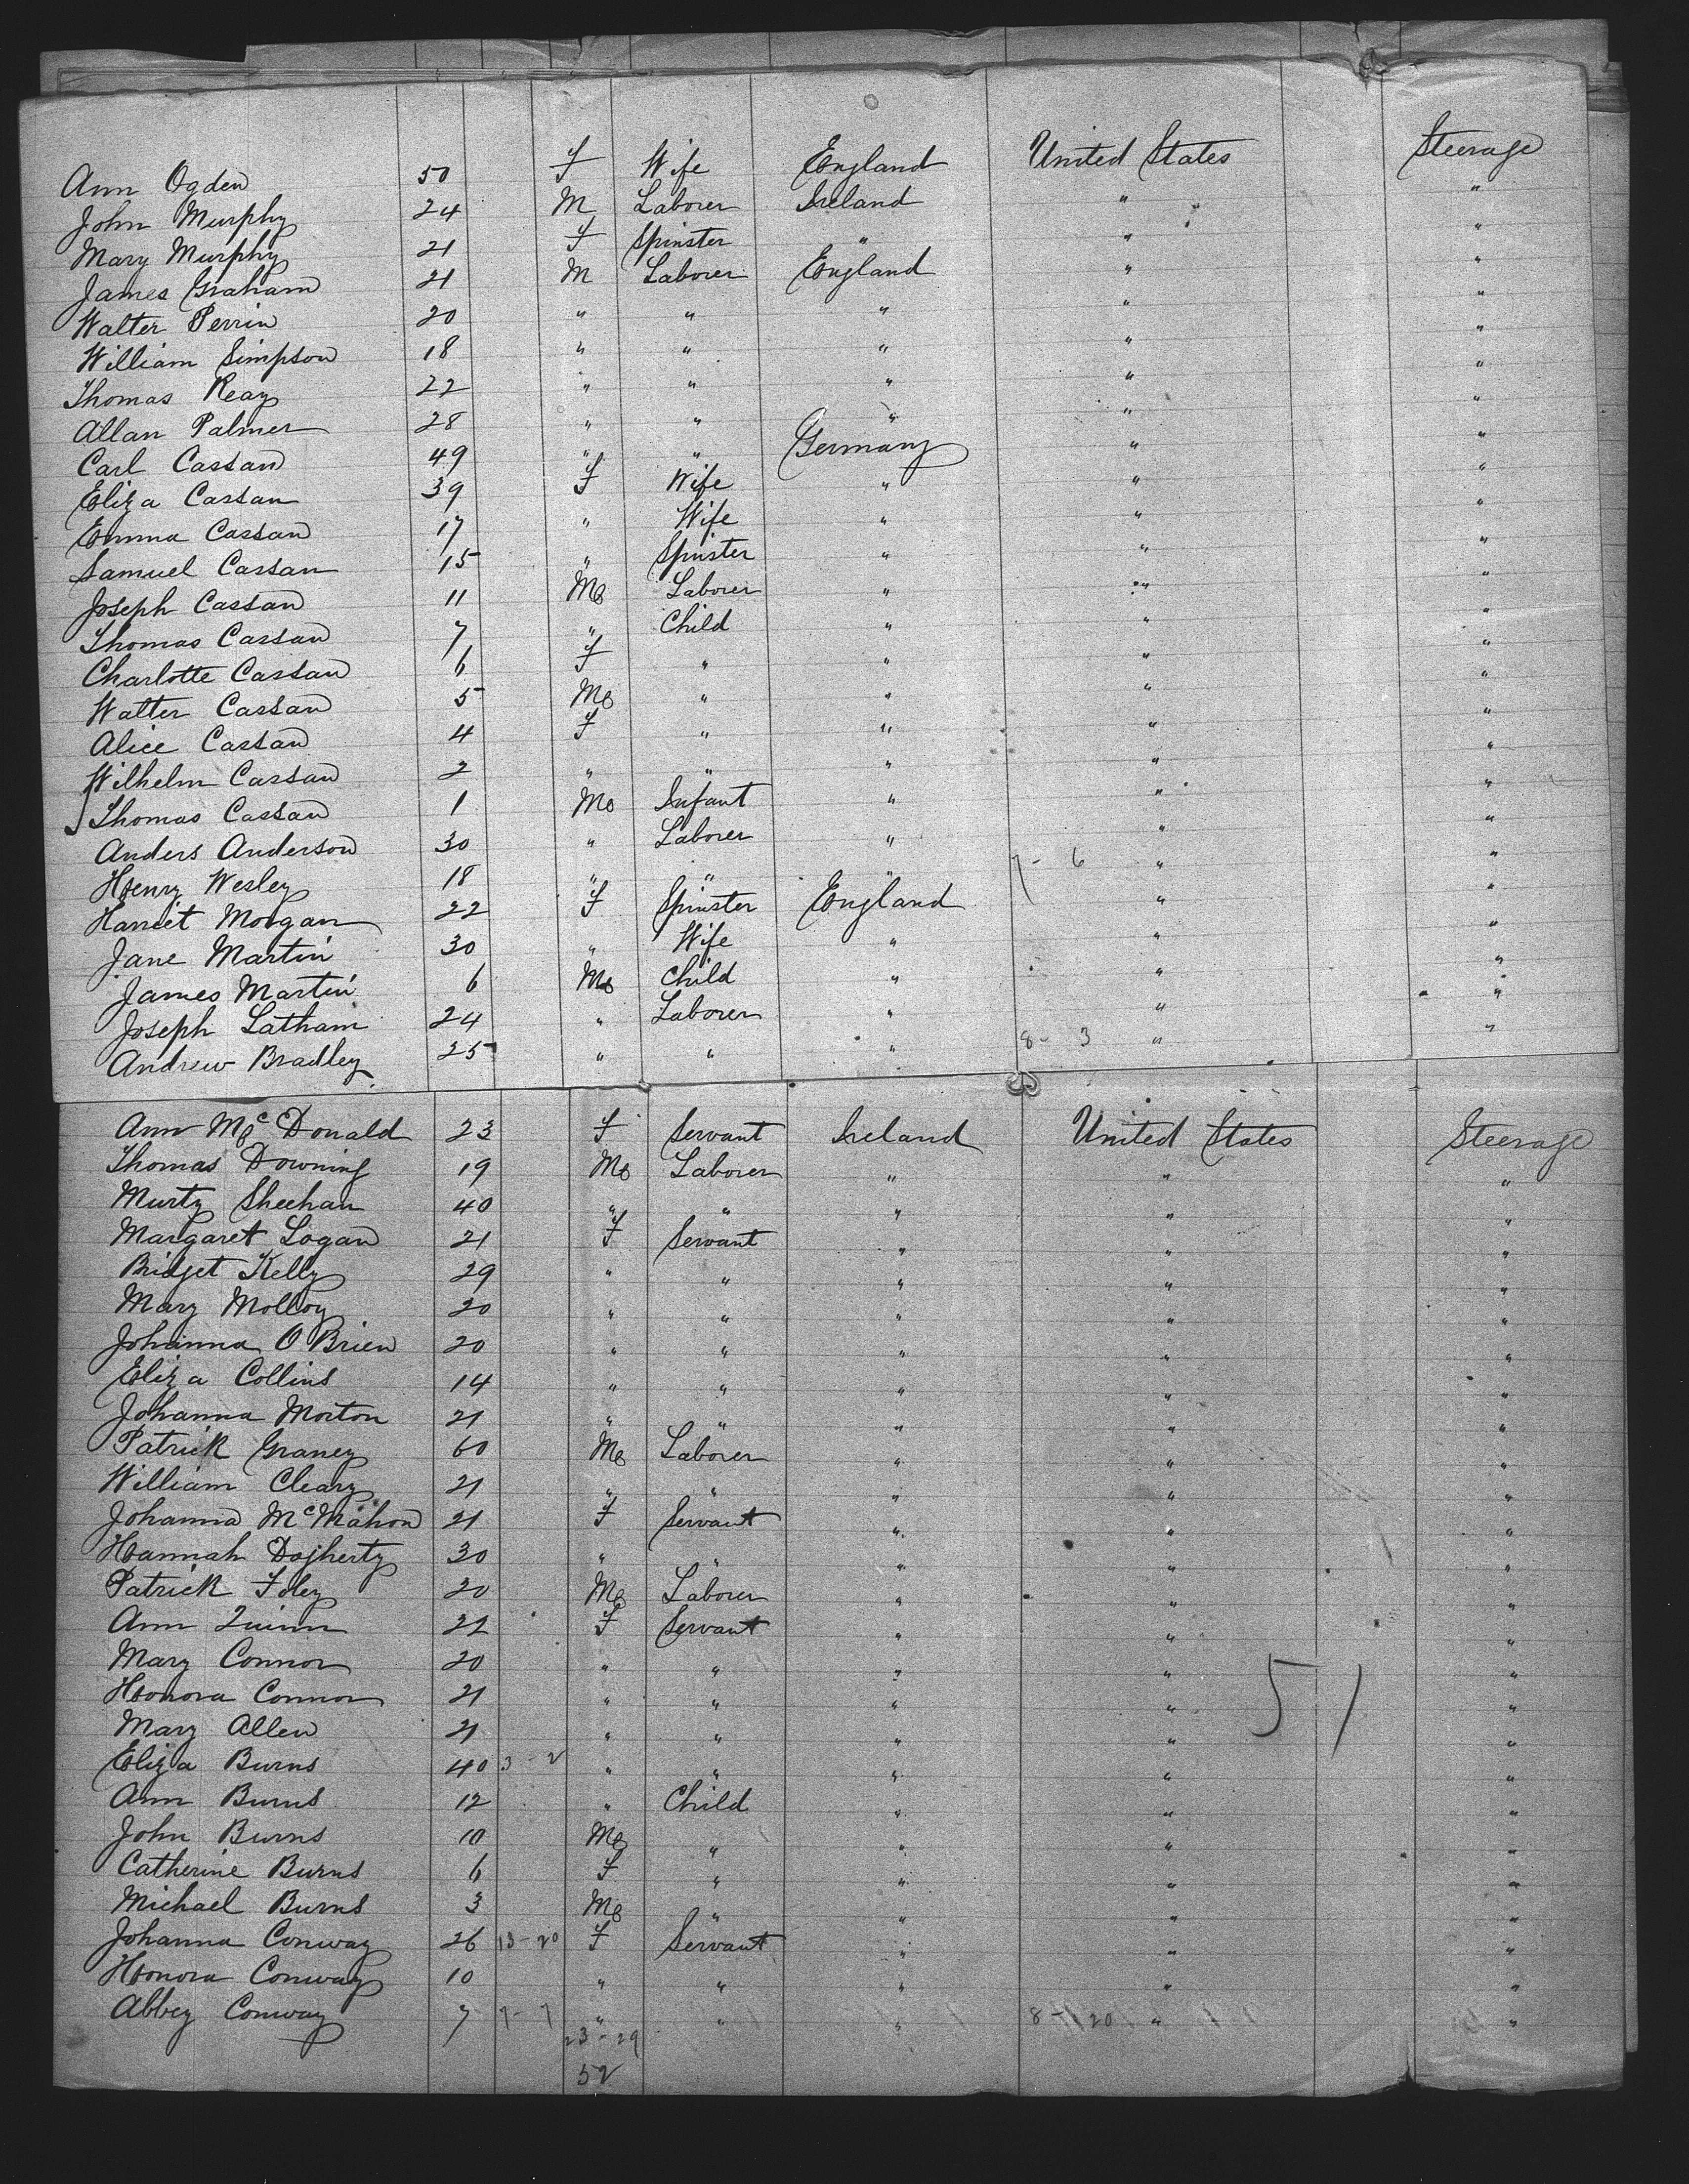 Ann Ogden 50 F Wife England United States Steerage
John Murphy 24 M Laborer Ireland " "
Mary Murphy 21 F Spinster " " "
James Graham 21 M Laborer England " "
Walter Perrin 20 " " " " "
William Simpson 18 " " " " "
Thomas Reay 22 " " " " "
Allan Palmer 28 " " " " "
Carl Cassan 49 " " Germany " "
Eliza Cassan 39 F Wife " " "
Emma Cassan 17 " Wife " " "
Samuel Cassan 15 " Spinster " " "
Joseph Cassan 11 M Laborer " " "
Thomas Cassan 7 " Child " " "
Charlotte Cassan 6 F " " " "
Walter Cassan 5 M " " " "
Alice Cassan 4 F " " " "
Wilhelm Cassan 2 " " " " "
Thomas Cassan 1 M Infant " " "
Anders Anderson 30 " Laborer " " "
Henry Wesley 18 " " " 7 - 6 " "
Harriet Morgan 22 F Spinster England " "
Jane Martin 30 " Wife " " "
James Martin 6 M Child " " "
Joseph Latham 24 " Laborer " " "
Andrew Bradley 25 " " " 8 - 3 " "
Ann McDonald 23 F Servant Ireland United States Steerage
Thomas Downing 19 M Laborer " " "
Murty Sheehan 40 " " " " "
Margaret Logan 21 F Servant " " "
Bridget Kelly 29 " " " " "
Mary Molloy 20 " " " " "
Johanna O Brien 20 " " " " "
Eliza Collins 14 " " " " "
Johanna Morton 21 " " " " "
Patrick Graney 60 M Laborer " " "
William Cleary 21 " " " " "
Johanna McMahon 21 F Servant " " "
Hannah Dogherty 30 " " " " "
Patrick Foley 20 M Laborer " " "
Ann Quinn 22 F Servant " " "
Mary Connor 20 " " " " "
Honora Connor 21 " " " " "
Mary Allen 21 " " " " 51 "
Eliza Burns 40 3 - 2 " " " " "
Ann Burns 12 " Child " " "
John Burns 10 M " " " "
Catherine Burns 6 F " " " "
Michael Burns 3 M " " " "
Johanna Conway 26 13 - 20 F Servant " " "
Honora Conway 10 " " " " "
Abbey Conway 7 7 - 7 " " " 8 - 20 " "
23 - 29
52